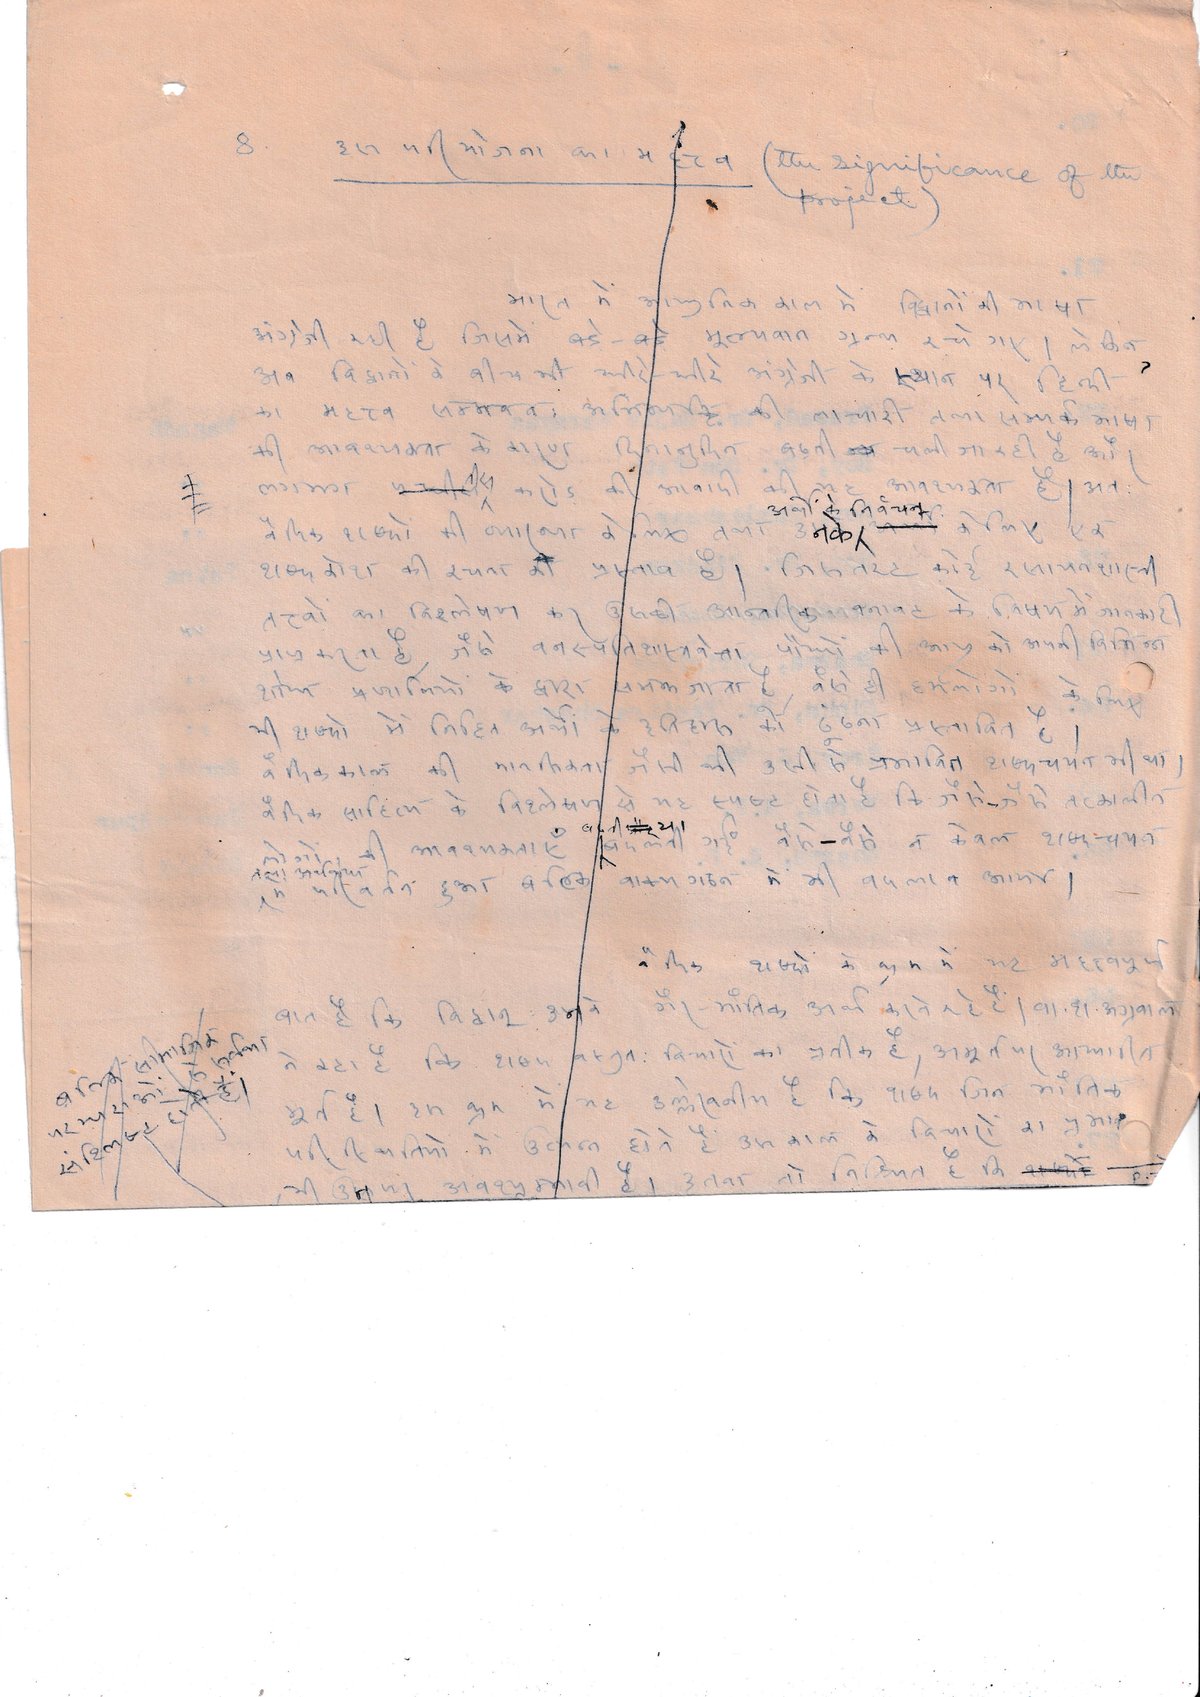 8. इस परियोजना का महत्व (the significance of the
project)
भारत में आधुनिक काल में विद्वानों की भाषा
अंग्रेजी रही है जिसमें बड़े-बड़े मूल्यवान ग्रन्थ रचे गए। लेकिन
अब विद्वानों के बीच भी धीरे-धीरे अंग्रेजी के स्थान पर हिन्दी
का महत्व सम्भवतः की लाचारी तथा सम्पर्क भाषा
की आवश्यकता के कारण दिनानुदिन बढ़ती चली जा रही है और
लगभग करोड़ की आबादी की यह आवश्यकता है। अतः
अर्थों के निर्वचन
वैदिक शब्दों की व्याख्या के लिए तथा उनके के लिए एक
शब्दकोश की रचना का प्रस्ताव है। जिस तरह कोई रसायनशास्त्री
तत्वों का विश्लेषण कर उसकी आन्तरिक बनावट के विषय में जानकारी
प्राप्त करता है, जैसे वनस्पतिशास्त्रवेत्ता पौधों की आयु को अपनी विभिन्न
शोध प्रणालियों के द्वारा समझ जाता है, वैसे ही हमलोगों के लिए
भी शब्दों में निहित अर्थों के इतिहास को ढूंढना प्रस्तावित है।
वैदिक काल की मानसिकता जैसी थी उसी से प्रभावित शब्द-चयन भी था।
वैदिक साहित्य के विश्लेषण से यह स्पष्ट होता है कि जैसे-जैसे तत्कालीन
लोगों की आवश्यकताएँ बदलती गईं वैसे-वैसे न केवल शब्द-चयन
में परिवर्तन हुआ बल्कि वाक्य गठन में भी बदलाव आया।
वैदिक शब्दों के क्रम में यह महत्वपूर्ण
बात है कि विद्वान् उनके गैर-भौतिक अर्थ करते रहे हैं। वा. श. अग्रवाल
ने कहा है कि शब्द वस्तुतः विचारों का प्रतीक है, अमूर्त पर आधारित
मूर्त है। इस क्रम में यह उल्लेखनीय है कि शब्द जिन भौतिक
परिस्थितियों में उत्पन्न होते हैं उस काल के विचारों का प्रभाव
भी उनपर अवश्यम्भावी है। इतना तो निश्चित है कि